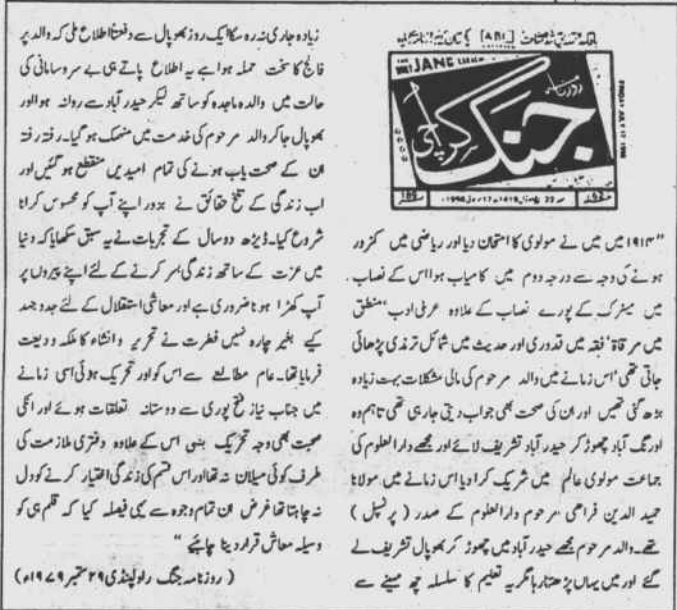 THE DAILY JANG
روزنامہ
جنگ
کراچی
FRIDAY JULY 17 1998
"۱۹۱۴ میں میں نے مولوی کا امتحان دیا اور ریاضی میں کمزور
ہونے کی وجہ سے درجہ دوم میں کامیاب ہوا اس کے نصاب
میں میٹرک کے پورے نصاب کے علاوہ عربی ادب' منطق
میں مرقاۃ' فقہ میں قدوری اور حدیث میں شمائل ترمذی پڑھائی
جاتی تھی' اس زمانے میں والد مرحوم کی مالی مشکلات بہت زیادہ
بڑھ گئی تھیں اور ان کی صحت بھی جواب دیتی جارہی تھی تاہم وہ
اورنگ آباد چھوڑ کر حیدر آباد تشریف لائے اور مجھے دارالعلوم کی
جماعت مولوی عالم میں شریک کرادیا اس زمانے میں مولانا
حمید الدین فراھی مرحوم دارالعلوم کے صدر ( پرنسپل )
تھے۔ والد مرحوم مجھے حیدر آباد میں چھوڑ کر بھوپال تشریف لے
گئے اور میں یہاں پڑھتا رہا مگر یہ تعلیم کا سلسلہ چھ مہینے سے
زیادہ جاری نہ رہ سکا ایک روز بھوپال سے دفعتاً اطلاع ملی کہ والد پر
فالج کا سخت حملہ ہوا ہے یہ اطلاع پاتے ہی بے سروسامانی کی
حالت میں والدہ ماجدہ کو ساتھ لیکر حیدر آباد سے روانہ ہوا اور
بھوپال جاکر والد مرحوم کی خدمت میں منہمک ہو گیا۔ رفتہ رفتہ
ان کے صحت یاب ہونے کی تمام امیدیں منقطع ہو گئیں اور
اب زندگی کے تلخ حقائق نے بزور اپنے آپ کو محسوس کرانا
شروع کیا۔ ڈیڑھ دو سال کے تجربات نے یہ سبق سکھایا کہ دنیا
میں عزت کے ساتھ زندگی بسر کرنے کے لئے اپنے پیروں پر
آپ کھڑا ہونا ضروری ہے اور معاشی استقلال کے لئے جدوجہد
کیے بغیر چارہ نہیں فطرت نے تحریر و انشاء کا ملکہ ودیعت
فرمایا تھا۔ عام مطالعے سے اس کو اور تحریک ہوئی اسی زمانے
میں جناب نیاز فتح پوری سے دوستانہ تعلقات ہوئے اور انکی
صحبت بھی وجہ تحریک بنی اس کے علاوہ دفتری ملازمت کی
طرف کوئی میلان نہ تھا اور اس قسم کی زندگی اختیار کرنے کو دل
نہ چاہتا تھا غرض ان تمام وجوہ سے یہی فیصلہ کیا کہ قلم ہی کو
وسیلہ معاش قرار دینا چاہئے "
( روزنامہ جنگ راولپنڈی ۲۹ ستمبر ۱۹۷۹ء)